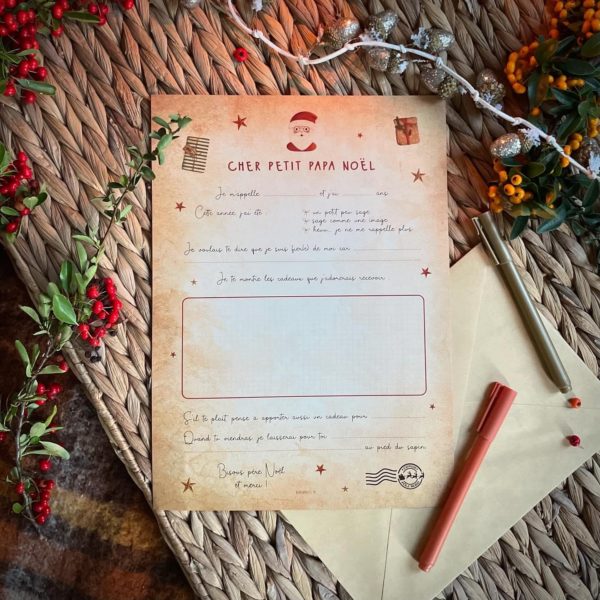 CHER PETIT PAPA NOËL
Je m'appelle et j'ai ans
Cette année j'ai été : + un petit peu sage
+ sage comme une image
+ heuu... je ne me rappelle plus
Je voulais te dire que je suis fier(e) de moi car
Je te montre les cadeaux que j'aimerais recevoir
S'il te plaît pense à apporter aussi un cadeau pour
Quand tu viendras, je laisserai pour toi
au pied du sapin
Bisous père Noël
et merci !